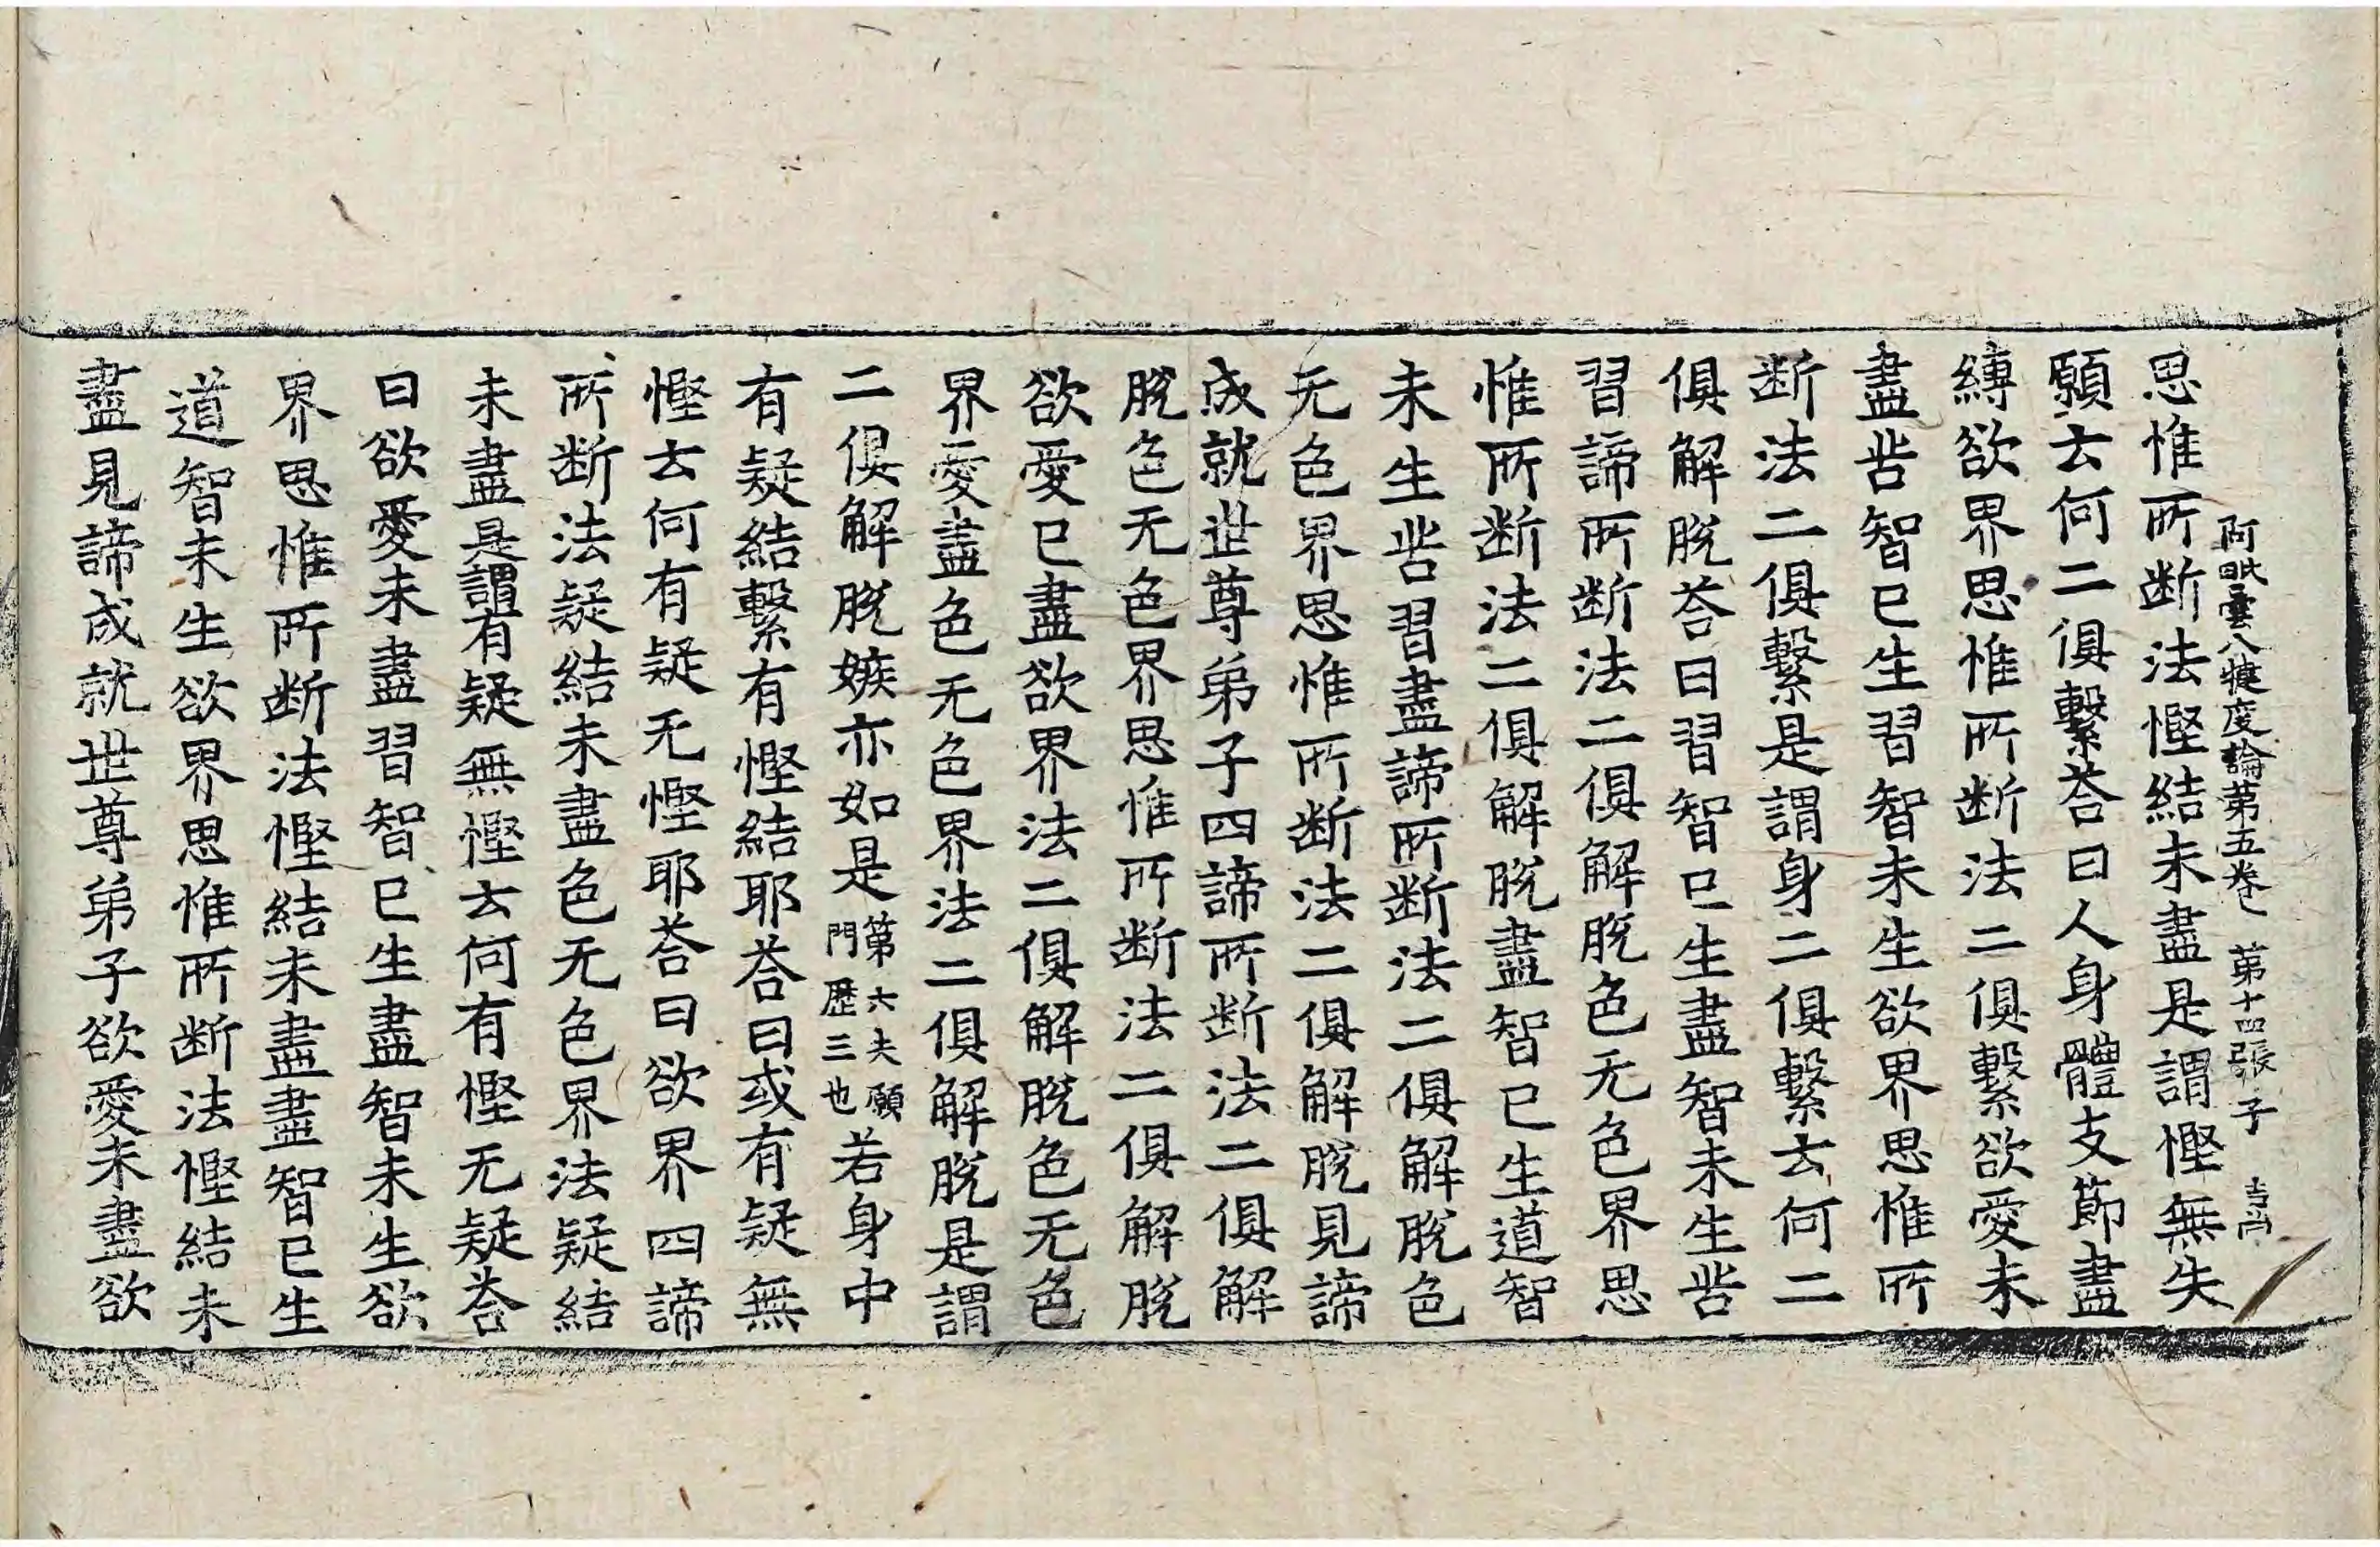 阿毗曇八犍度論第五卷 第十四張 子 吉尚
思惟所断法慳結未盡是謂慳無失
願云何二俱繫荅曰人身體支節盡
縛欲界思惟所断法二俱繫欲愛未
盡苦智已生習智未生欲界思惟所
断法二俱繫是謂身二俱繫云何二
俱解脫荅曰習智已生盡智未生苦
習諦所断法二俱解脫色无色界思
惟所断法二俱解脫盡智已生道智
未生苦習盡諦所断法二俱解脫色
无色界思惟所断法二俱解脫見諦
成就世尊弟子四諦所断法二俱解
脫色无色界思惟所断法二俱解脫
欲愛已盡欲界法二俱解脫色无色
界愛盡色无色界法二俱解脫是謂
二俱解脫嫉亦如是第六夫願門歷三也若身中
有疑結繫有慳結耶荅曰或有疑無
慳云何有疑无慳耶荅曰欲界四諦
所断法疑結未盡色无色界法疑結
未盡是謂有疑無慳云何有慳无疑荅
曰欲愛未盡習智已生盡智未生欲
界思惟所断法慳結未盡盡智已生
道智未生欲界思惟所断法慳結未
盡見諦成就世尊弟子欲愛未盡欲